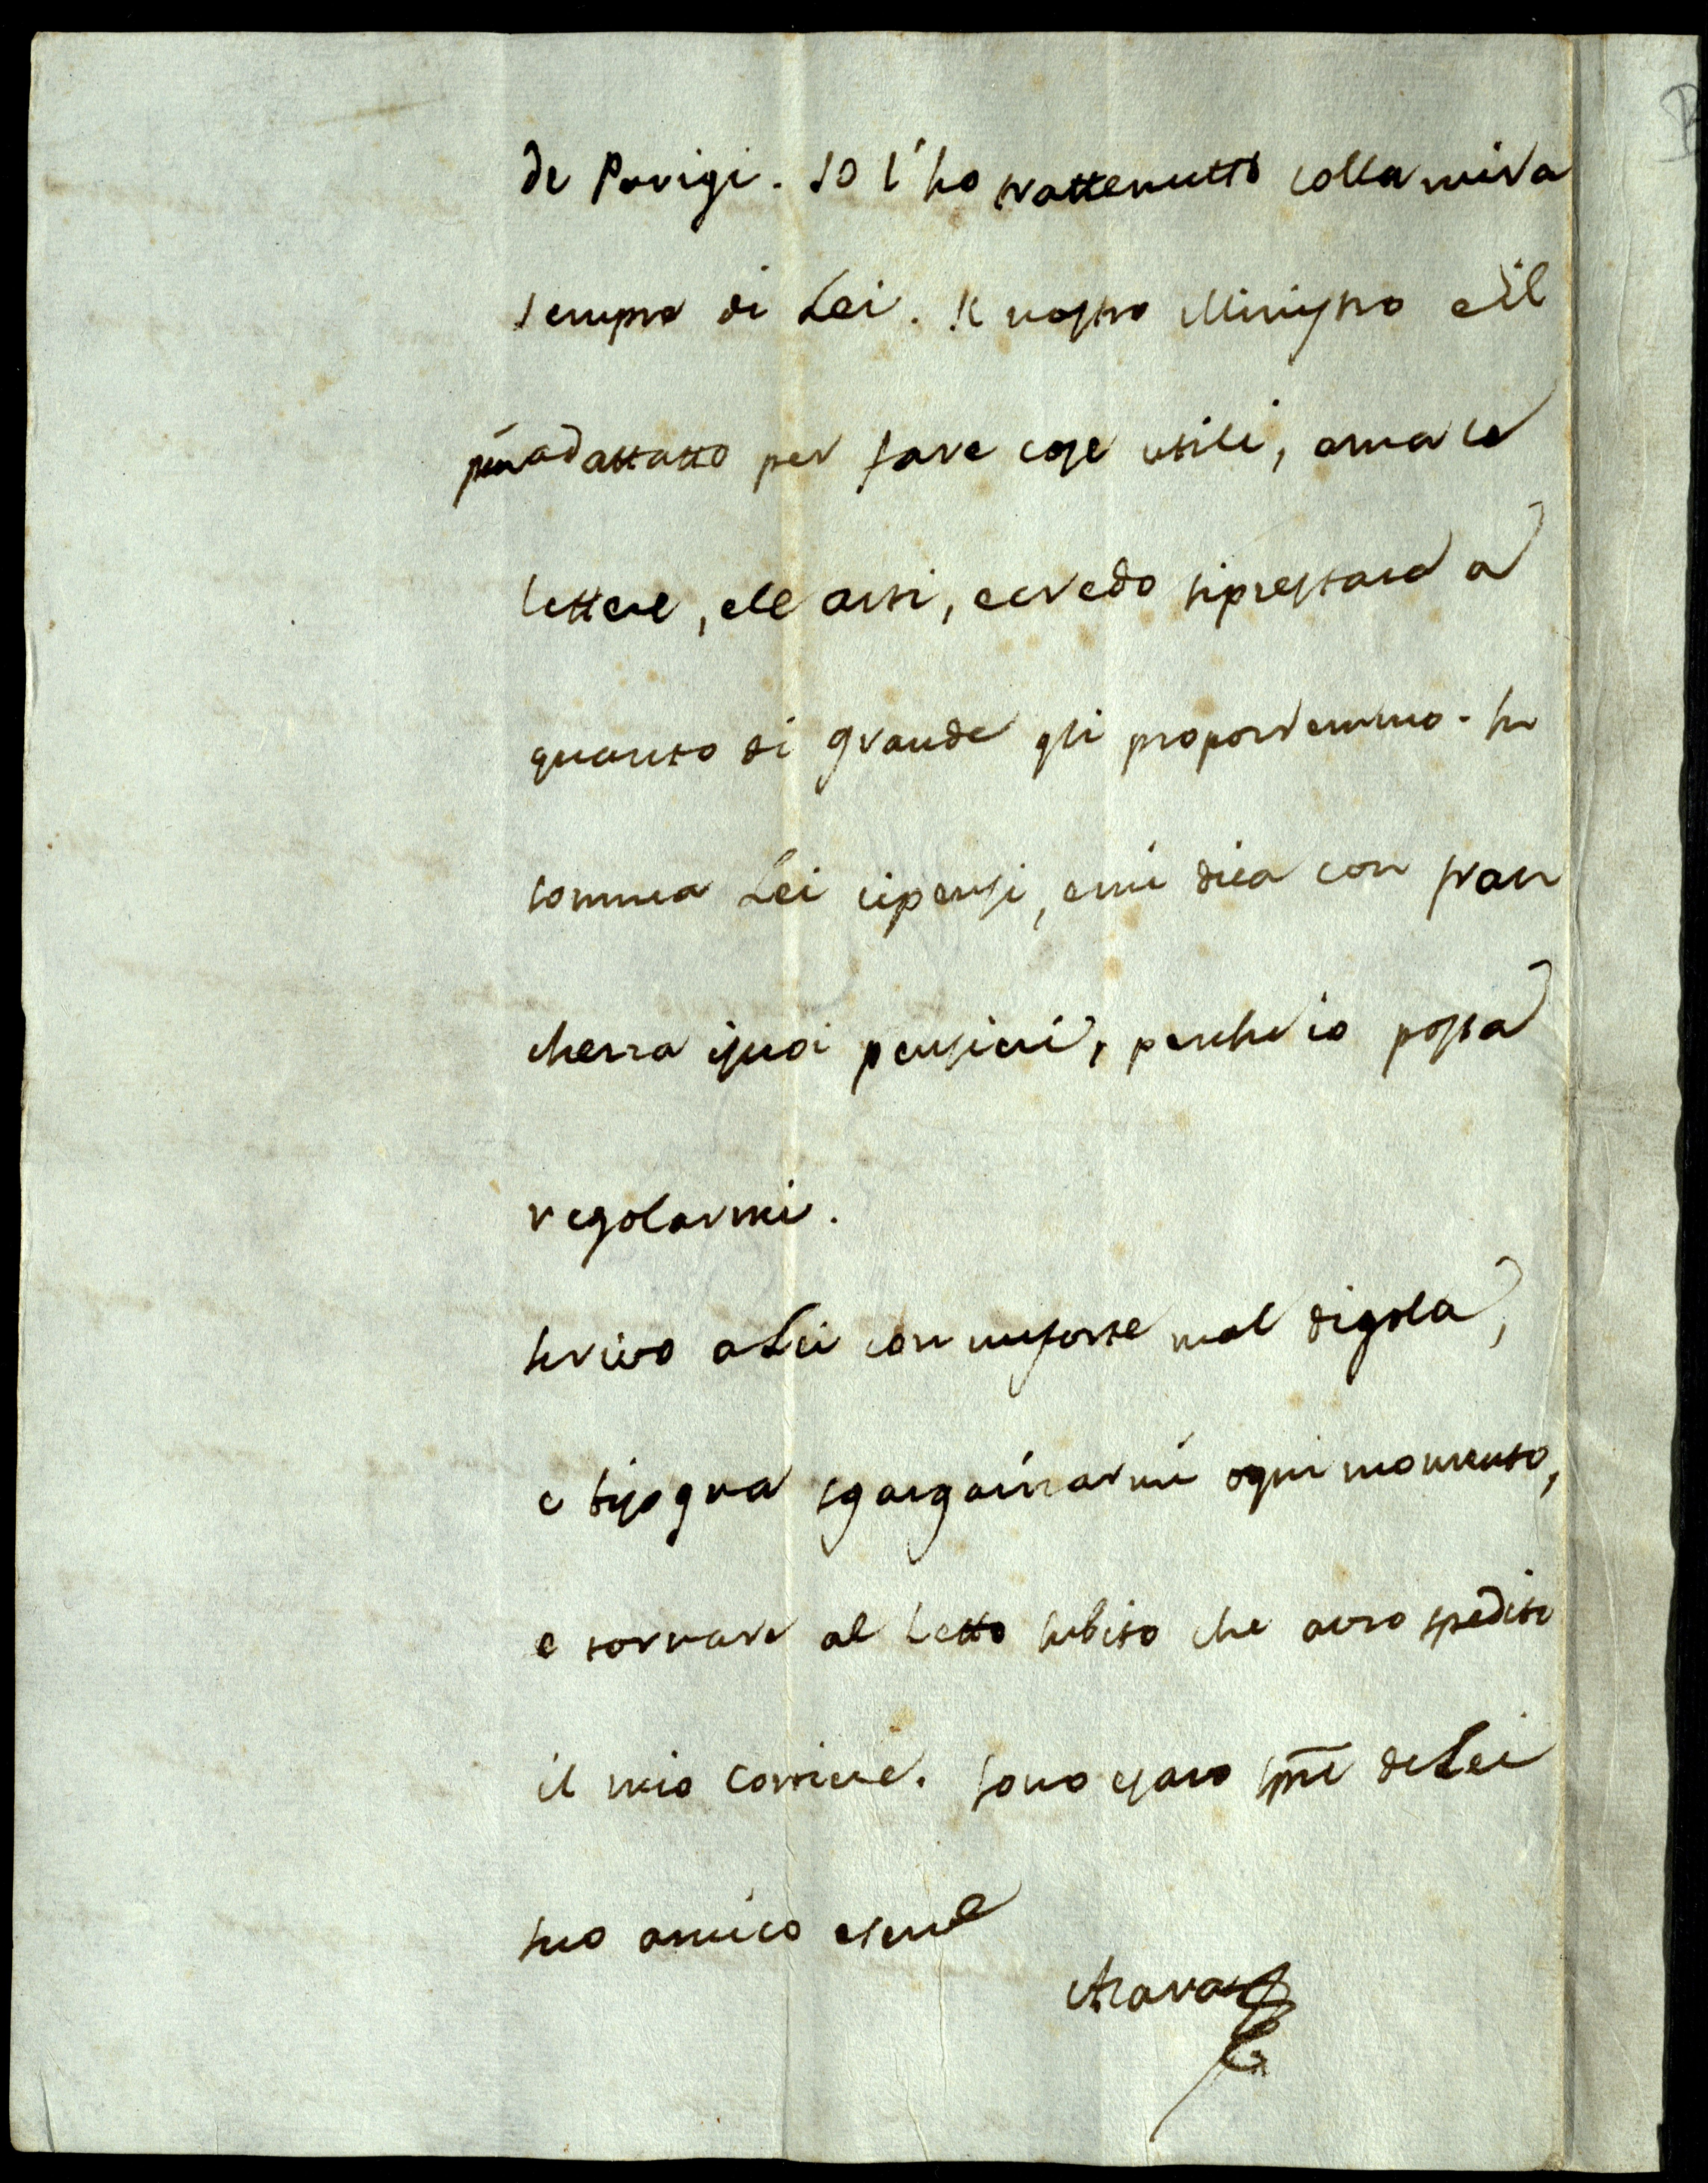 de Parigi. Io l'ho trattenutto colla mira
sempre di Lei. Il nostro Ministro e il
più adattatto per fare cose utili, ama le
lettere, e le arti, e credo si prestará a
quanto di grande gli proporremmo. In
somma Lei ci pensi, e mi dica con fran
chezza i suoi pensieri, perche io possa
regolarmi.
Scrivo a Lei con un forte mal di gola,
e bisogna sgargarizarmi ogni momento,
e tornare al Letto subito che avro spedito
il mio Corriere. Sono e saro sp̅re de Lei
suo amico e ser.e
Azara